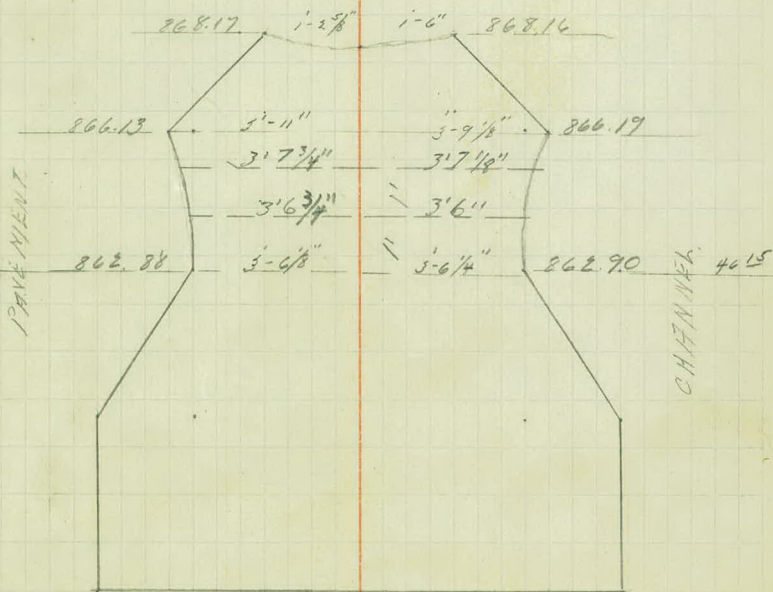 868.17 1'-2 5/8" 1'-6" 868.16
866.13 3'-11" 3-9 1/8" 866.19
3'7 3/4" 3'7 1/8"
3'6 3/4" 1' 3'6"
862.88 3'-6 1/8" 1' 3'-6 1/4" 862.90 46 15
PAVEMENT
CHANNEL